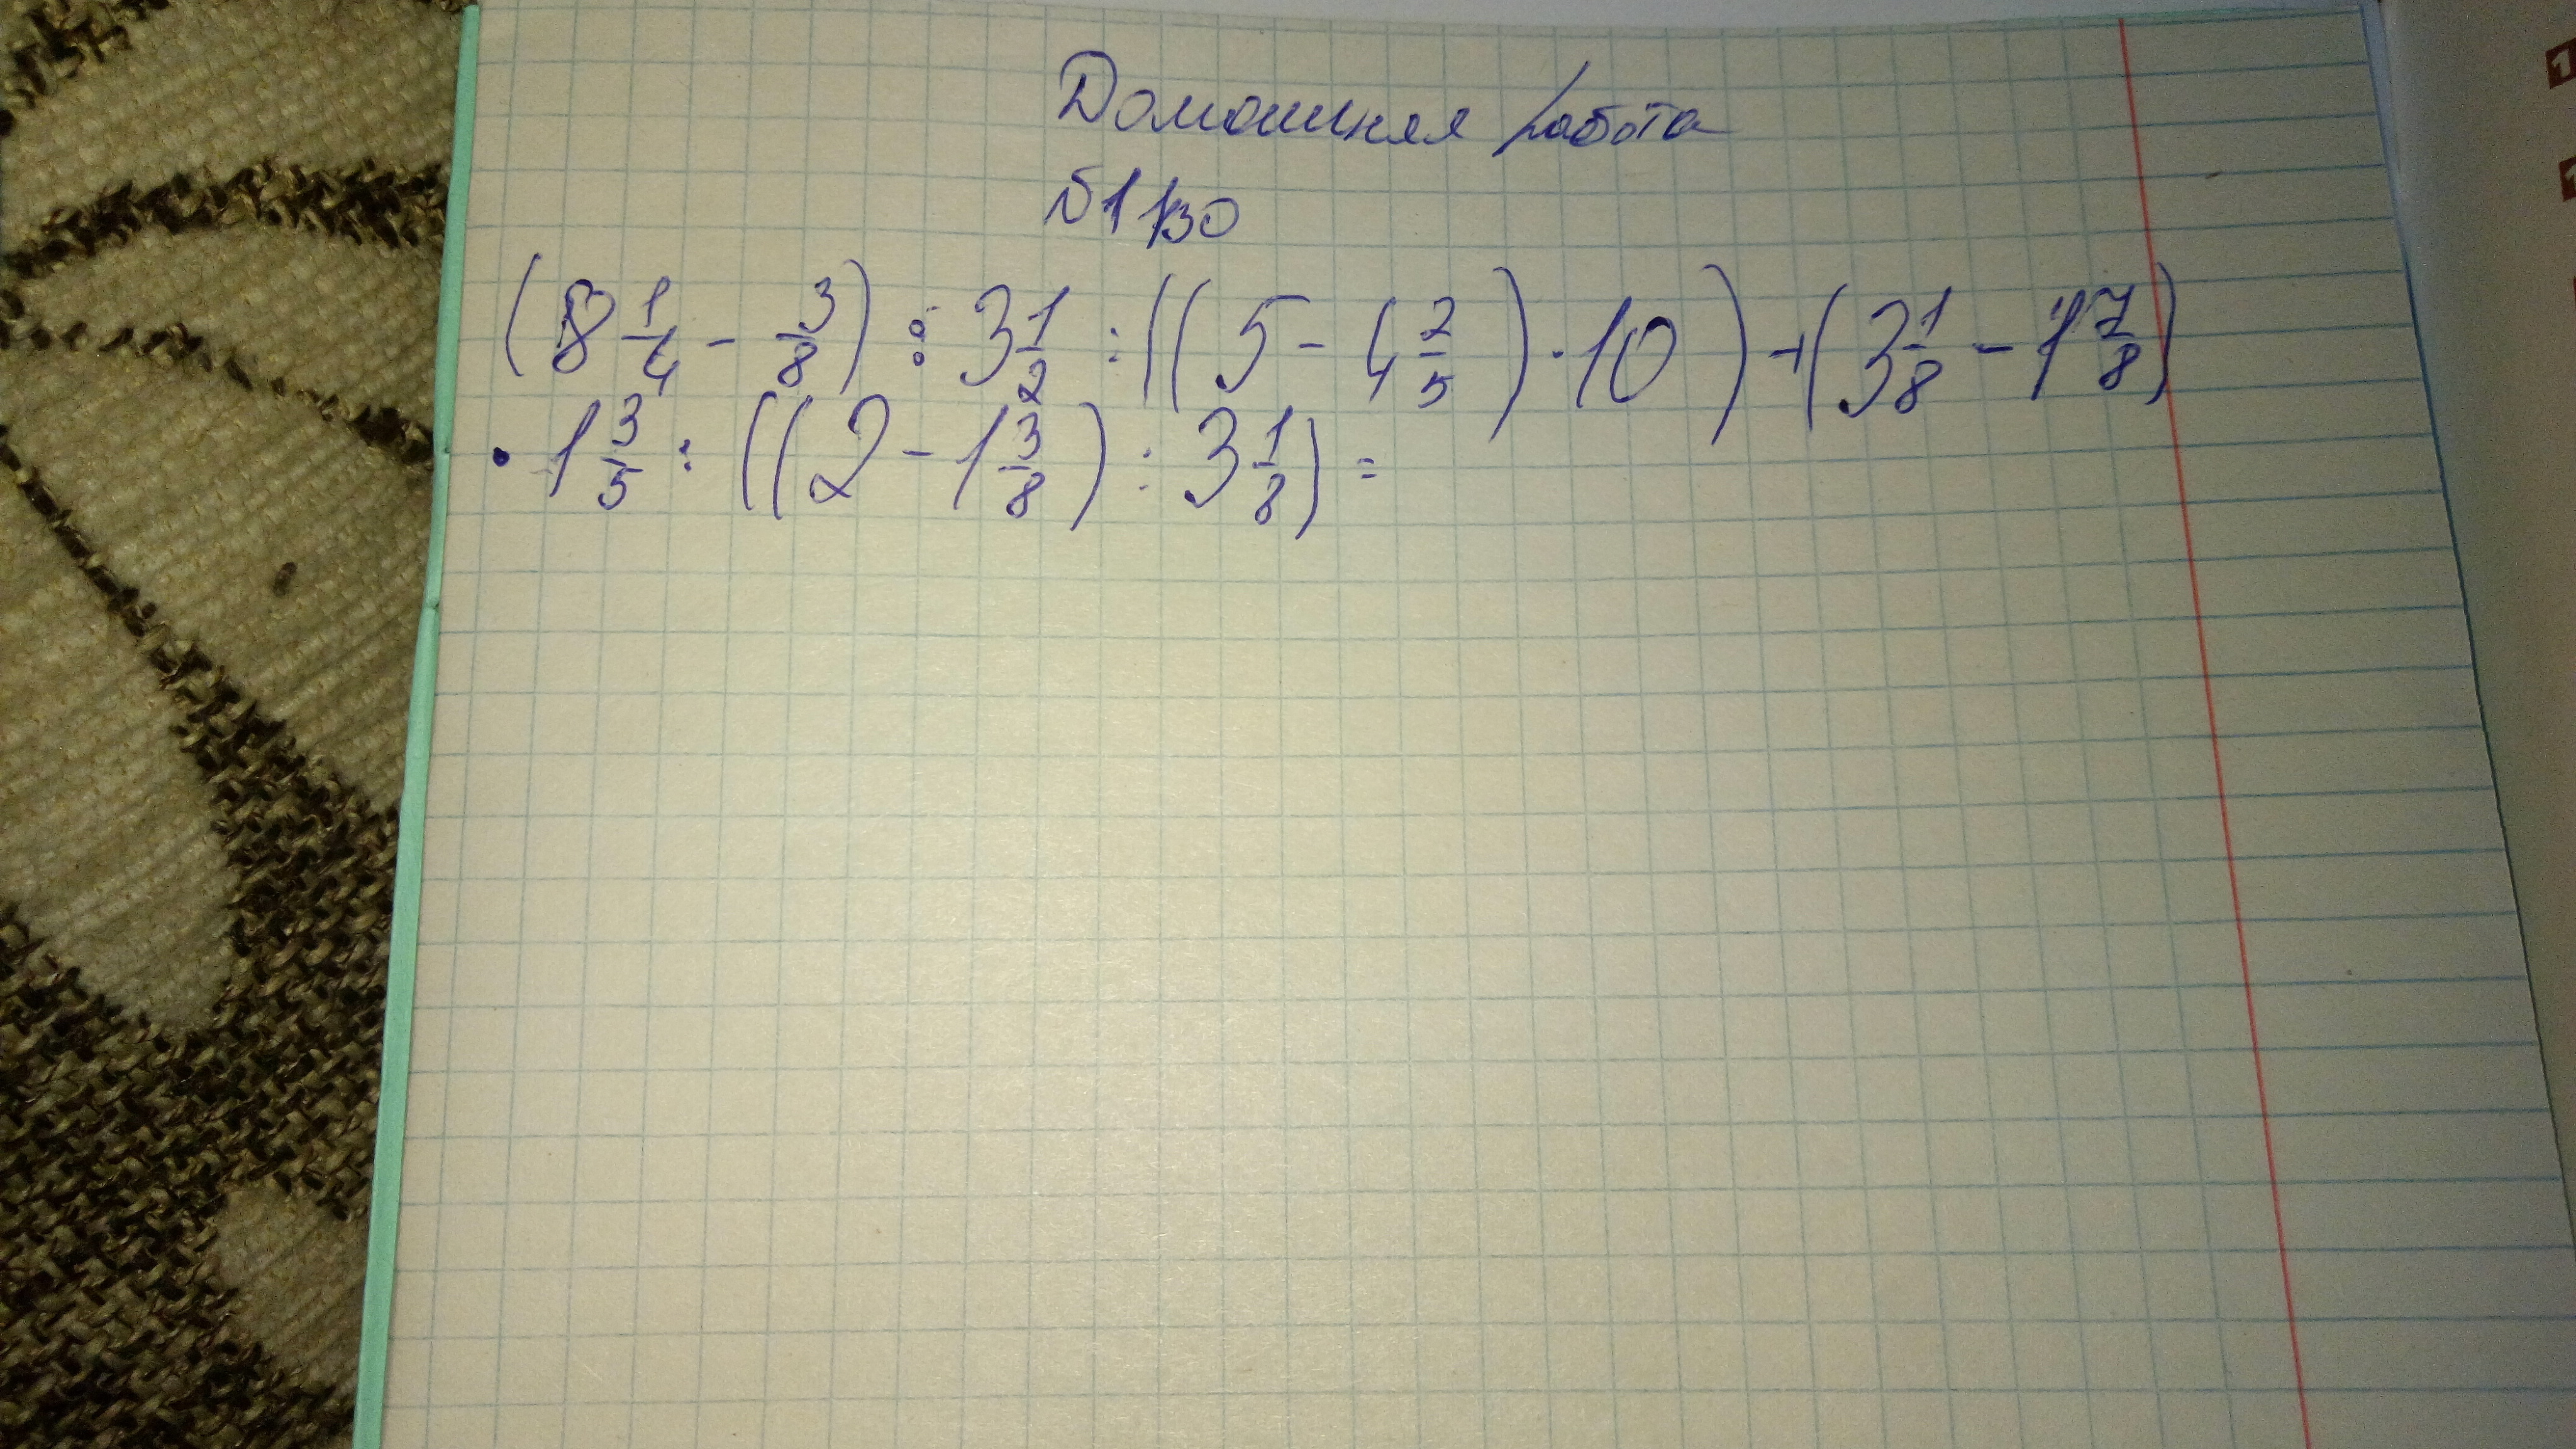 Домашняя работа
№1130
(8 1/4 - 3/8) : 3 1/2 : ((5 - 4 2/5) · 10) + (3 1/8 - 1 7/8)
· 1 3/5 : ((2 - 1 3/8) : 3 1/8) =